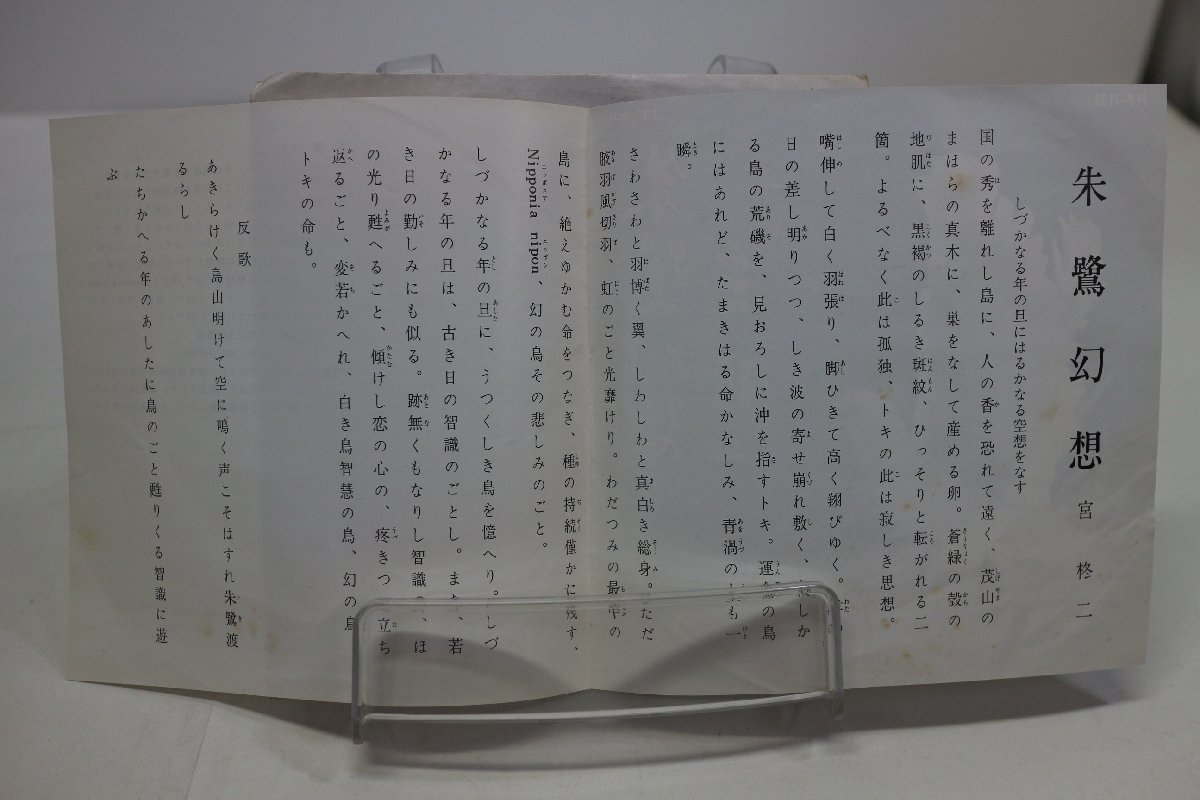 朱鷺幻想
宮柊二
しづかなる年の旦にはるかなる空想をなす
国の秀を離れし島に、人の香を恐れて遠く、茂山の
まほらの真木に、巣をなして産める卵。蒼緑の殻の
地肌に、黒褐のしるき斑紋、ひっそりと転がれる二
箇。よるべなく此は孤独、トキの此は寂しき思想。
嘴伸して白く羽張り、脚ひきて高く翔びゆく。
日の差し明りつつ、しき波の寄せ崩れ敷く、しか
る島の荒磯を、見おろしに沖を指すトキ。運の鳥
にはあれど、たまきはる命かなしみ、青渦のも一
瞬。
さわさわと羽博く翼、しわしわと真白き総身。ただ
腋羽風切羽、虹のごと光靡けり。わだつみの最中の
島に、絶えゆかむ命をつなぎ、種の持続僅かに残す、
Nipponia nipon、幻の鳥その悲しみのごと。
しづかなる年の旦に、うつくしき鳥を憶へり。しづ
かなる年の旦は、古き日の智識のごとし。また、若
き日の勤しみにも似る。跡無くもなりし智識の、ほ
の光り甦へるごと、傾けし恋の心の、疼きつつ立ち
返るごと、変若かへれ、白き鳥智慧の鳥、幻の鳥
トキの命も。
反歌
あきらけく島山明けて空に鳴く声こそはすれ朱鷺渡
るらし
たちかへる年のあしたに鳥のごと甦りくる智識に遊
ぶ